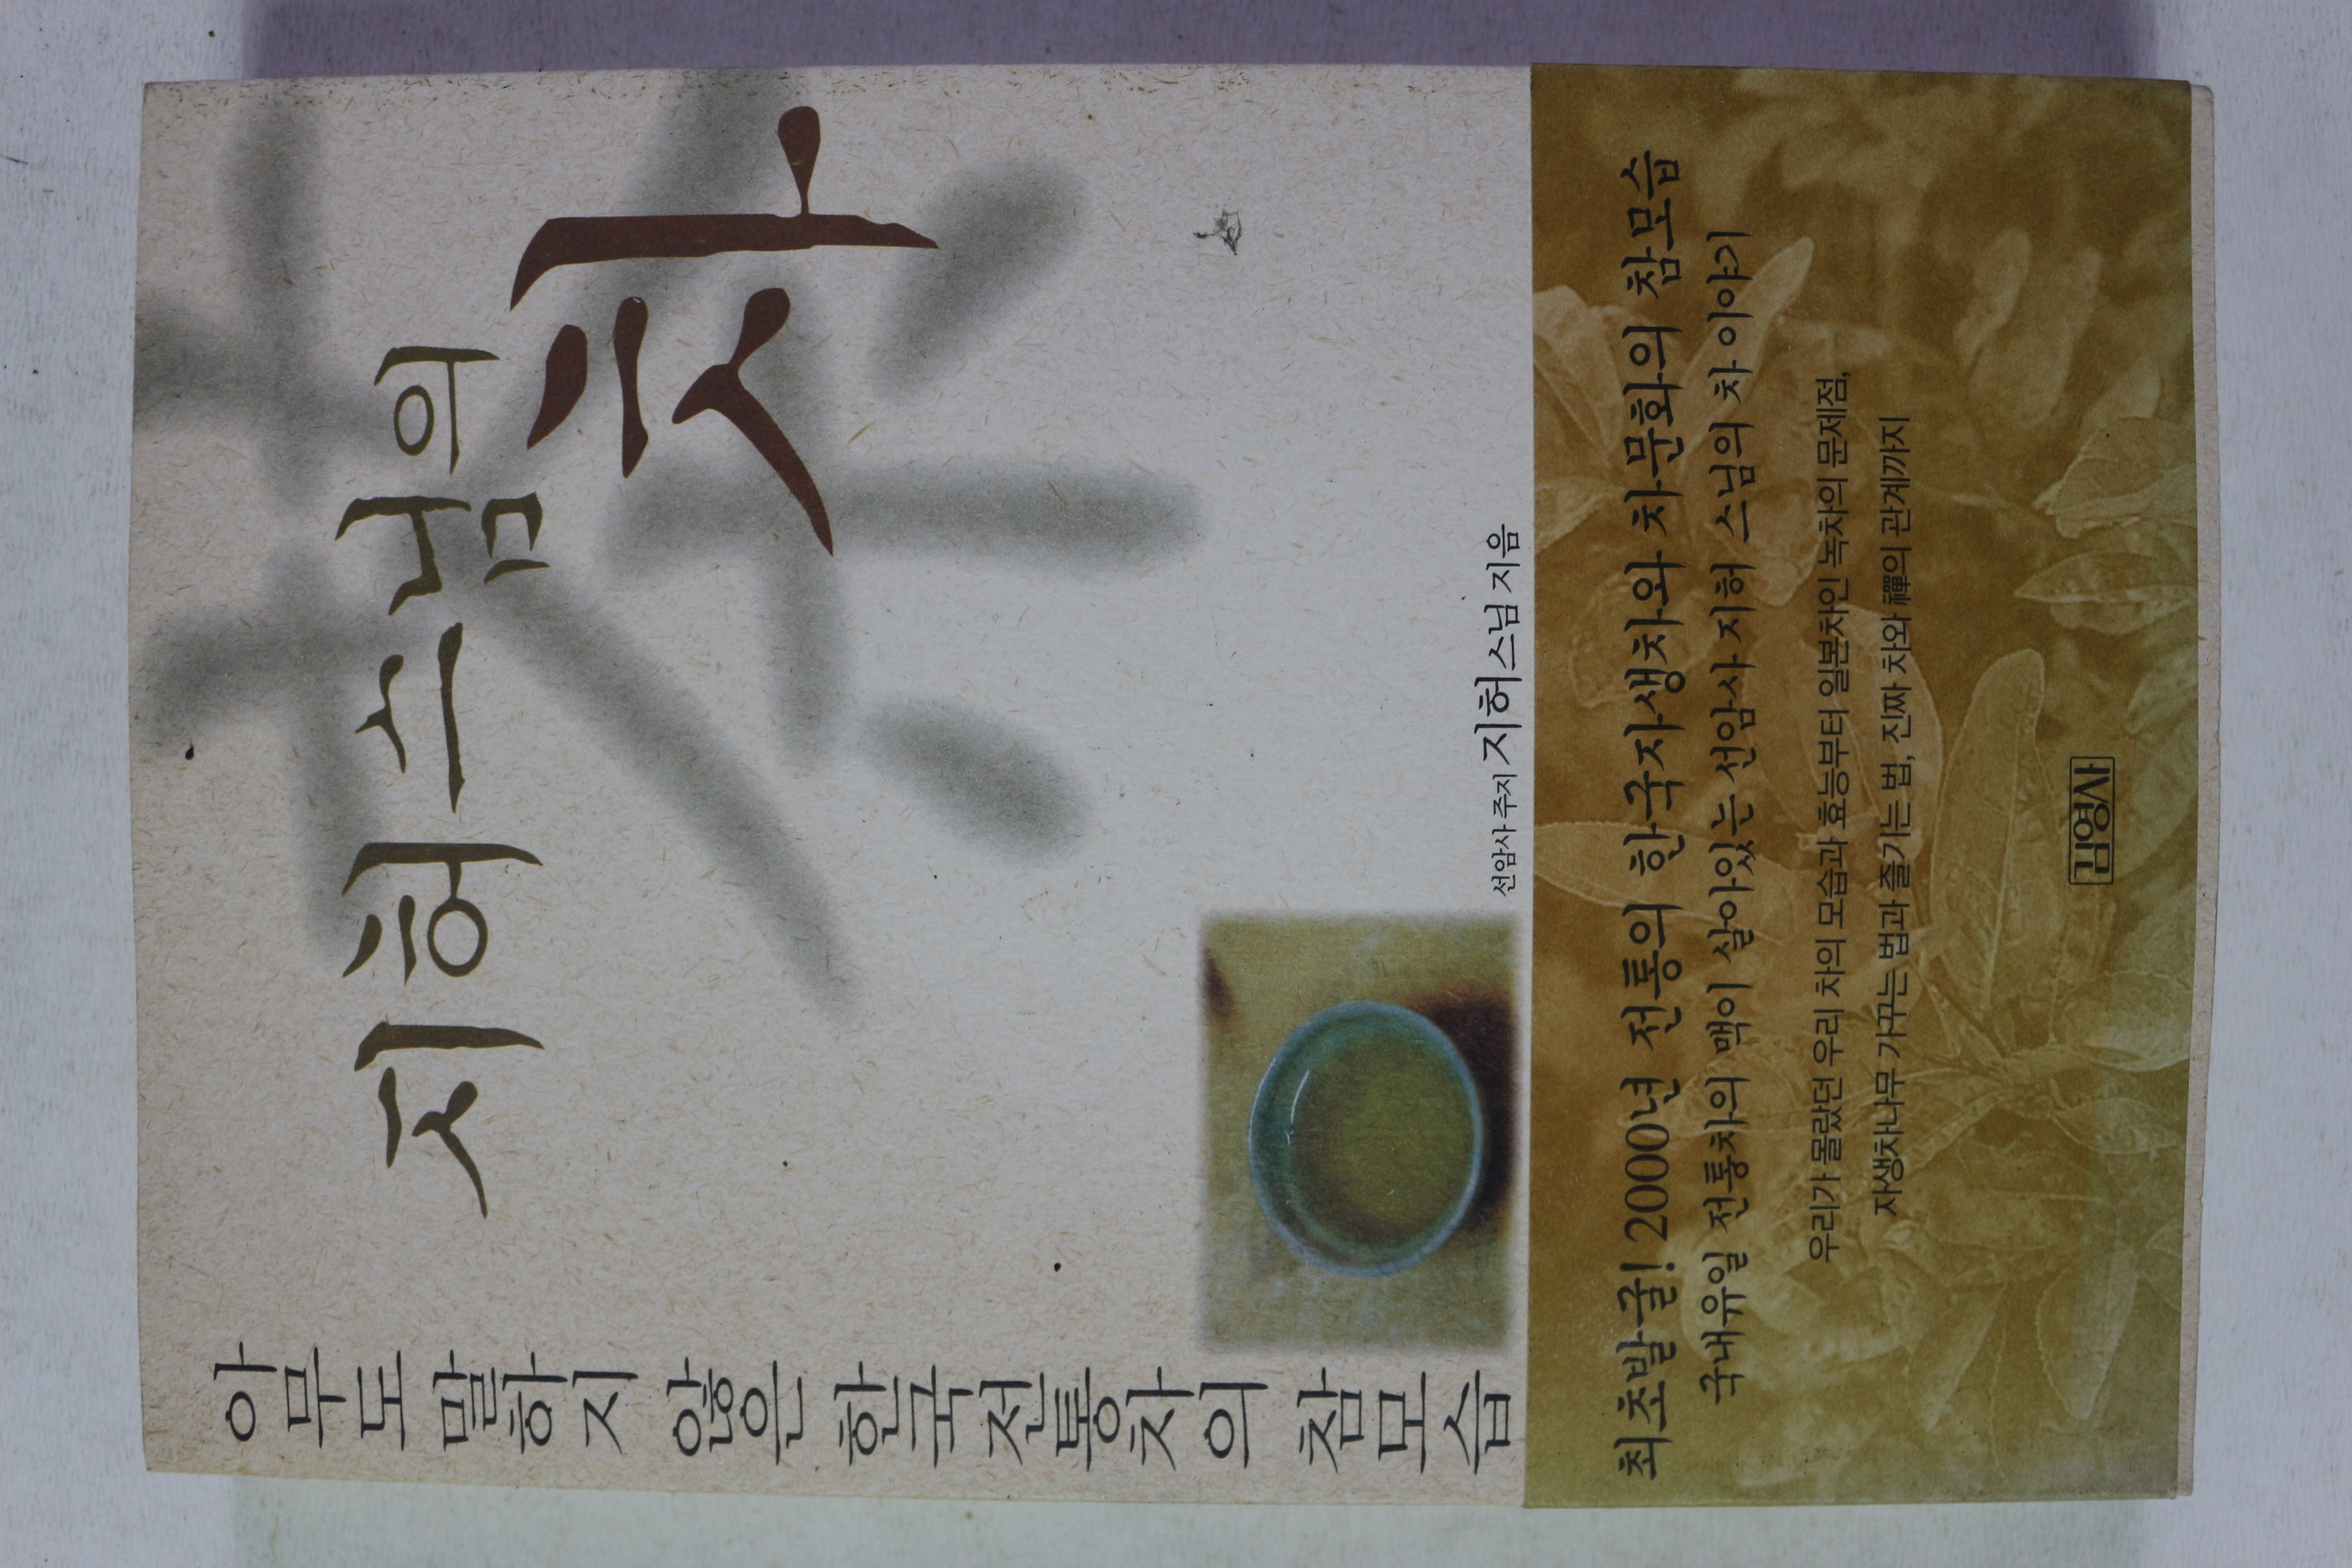 지허스님의
차
아무도 말하지 않은 한국전통차의 참모습
선암사 주지 지허스님 지음
최초발굴! 2000년 전통의 한국자생차와 차문화의 참모습
국내유일 전통차의 맥이 살아있는 선암사 지허 스님의 차 이야기
우리가 몰랐던 우리 차의 모습과 효능부터 일본차인 녹차의 문제점,
자생차나무 가꾸는 법과 즐기는 법, 진짜 차와 禪의 관계까지
김영사